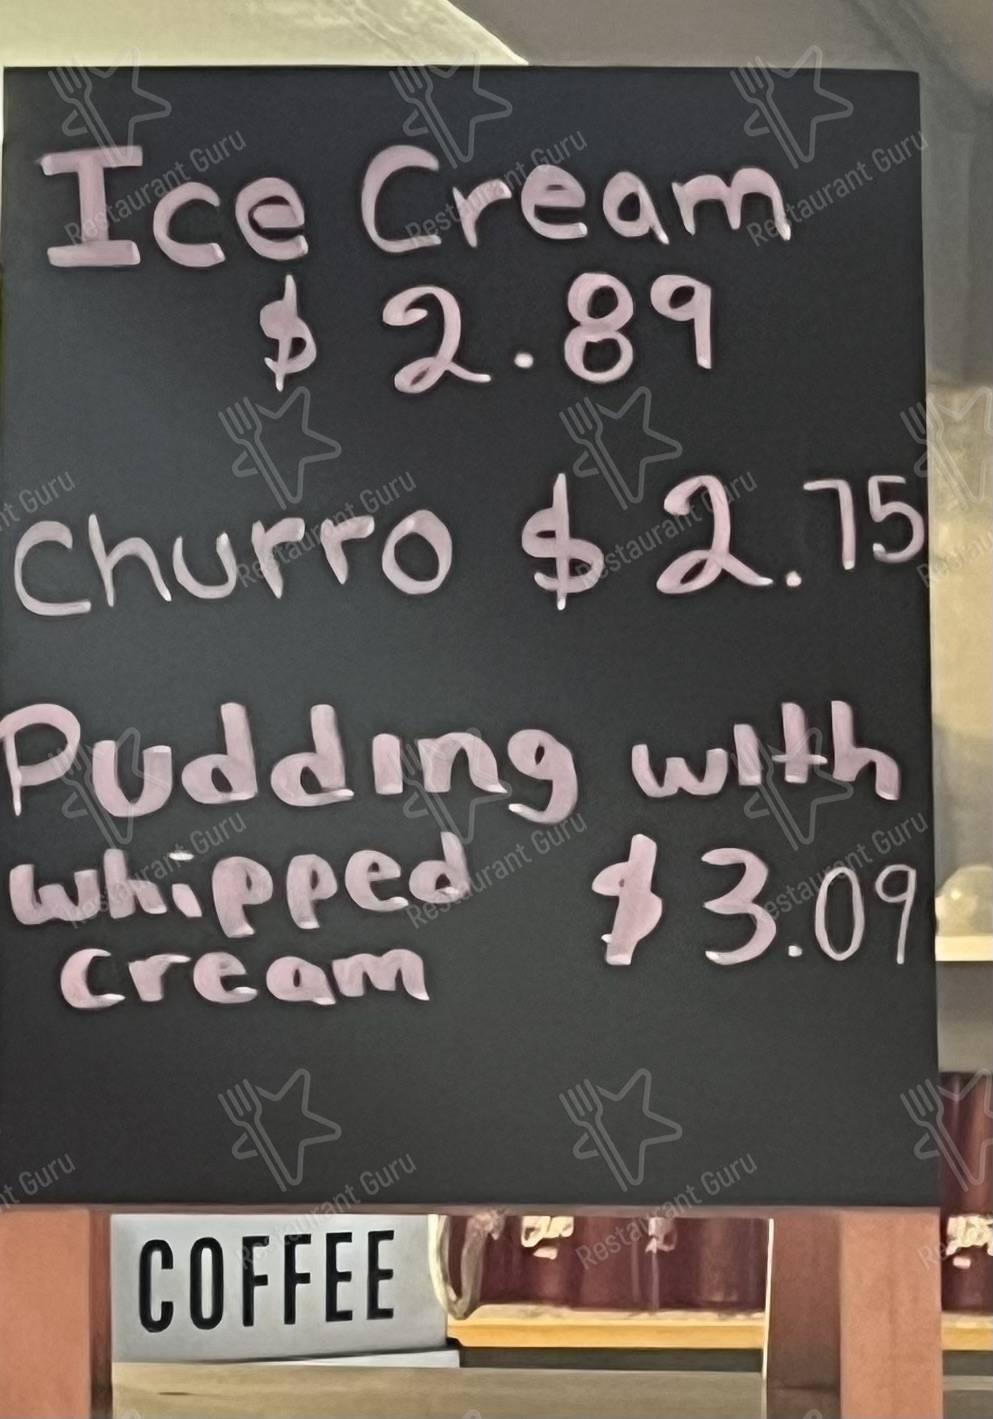 Ice Cream
$ 2.89
Churro $ 2.75
Pudding with
whipped $3.09
cream
COFFEE
Restaurant Guru